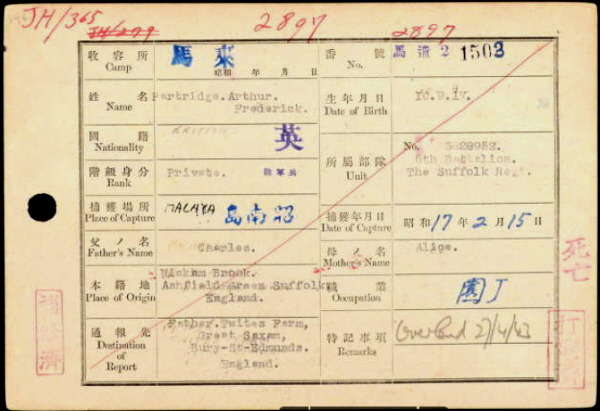 JH/365
JH/279
2897
2897
收容所
Camp
馬來
昭和 年 月 日
番號
No.
馬 2 1503
姓名
Name
Partridge.Arthur.
Frederick.
生年月日
Date of Birth
國籍
Nationality
英
階級身分
Rank
Private.
所屬部隊
Unit
No. 5829952.
5th Battalion.
The Suffolk Regt.
捕獲場所
Place of Capture
MALAYA 昭南島
捕獲年月日
Date of Capture
昭和 17年 2月 15日
父ノ名
Father's Name
Charles.
母ノ名
Mother's Name
Alice.
本籍地
Place of Origin
Wickham Brook.
Ashfield Green Suffolk
England.
職業
Occupation
園丁
通報先
Destination of Report
Father. Twites Farm,
Great Saxam,
Bury-St-Edmunds.
England.
特記事項
Remarks
Overland 27/4/43
死亡
濟